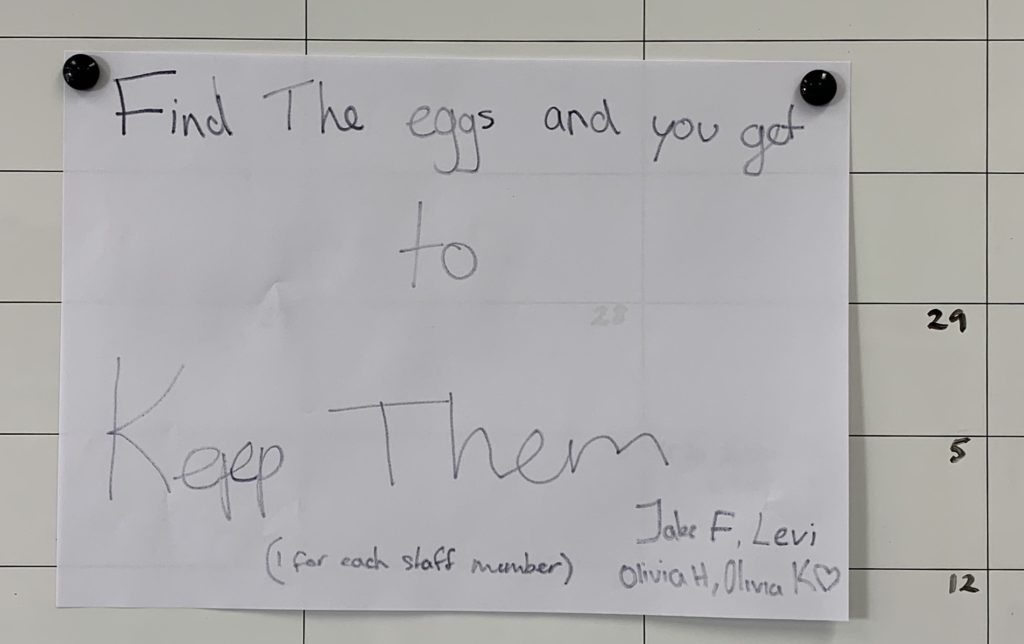 Find The eggs and you get
to
28
29
Keep Them
5
Jake F, Levi
(1 for each staff member)
Olivia H, Olivia K♡
12